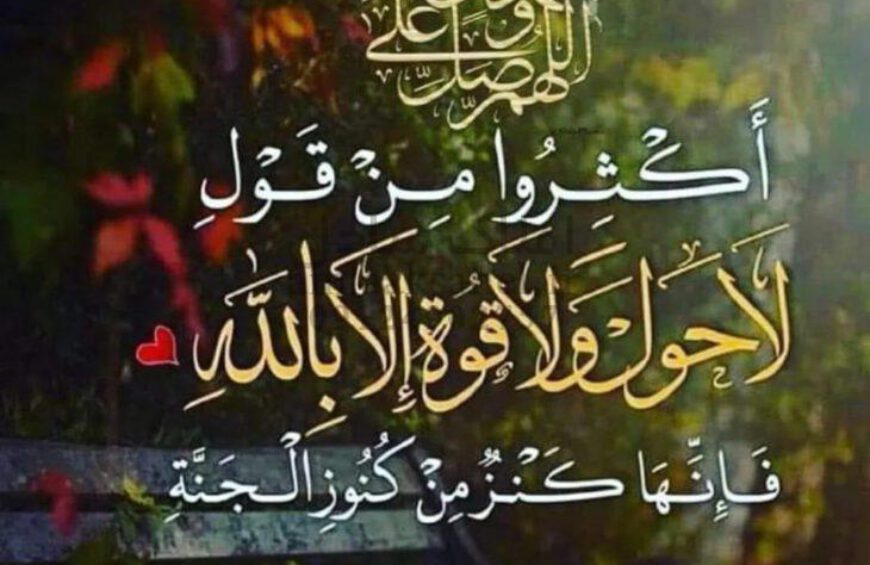 اللهم صل على
أَكْثِرُوا مِنْ قَوْلِ
لَا حَوْلَ وَلَا قُوةَ إِلا بِاللَّهِ
فَإِنَّهَا كَنْزٌ مِنْ كُنُوزِ الْجَنَّةِ